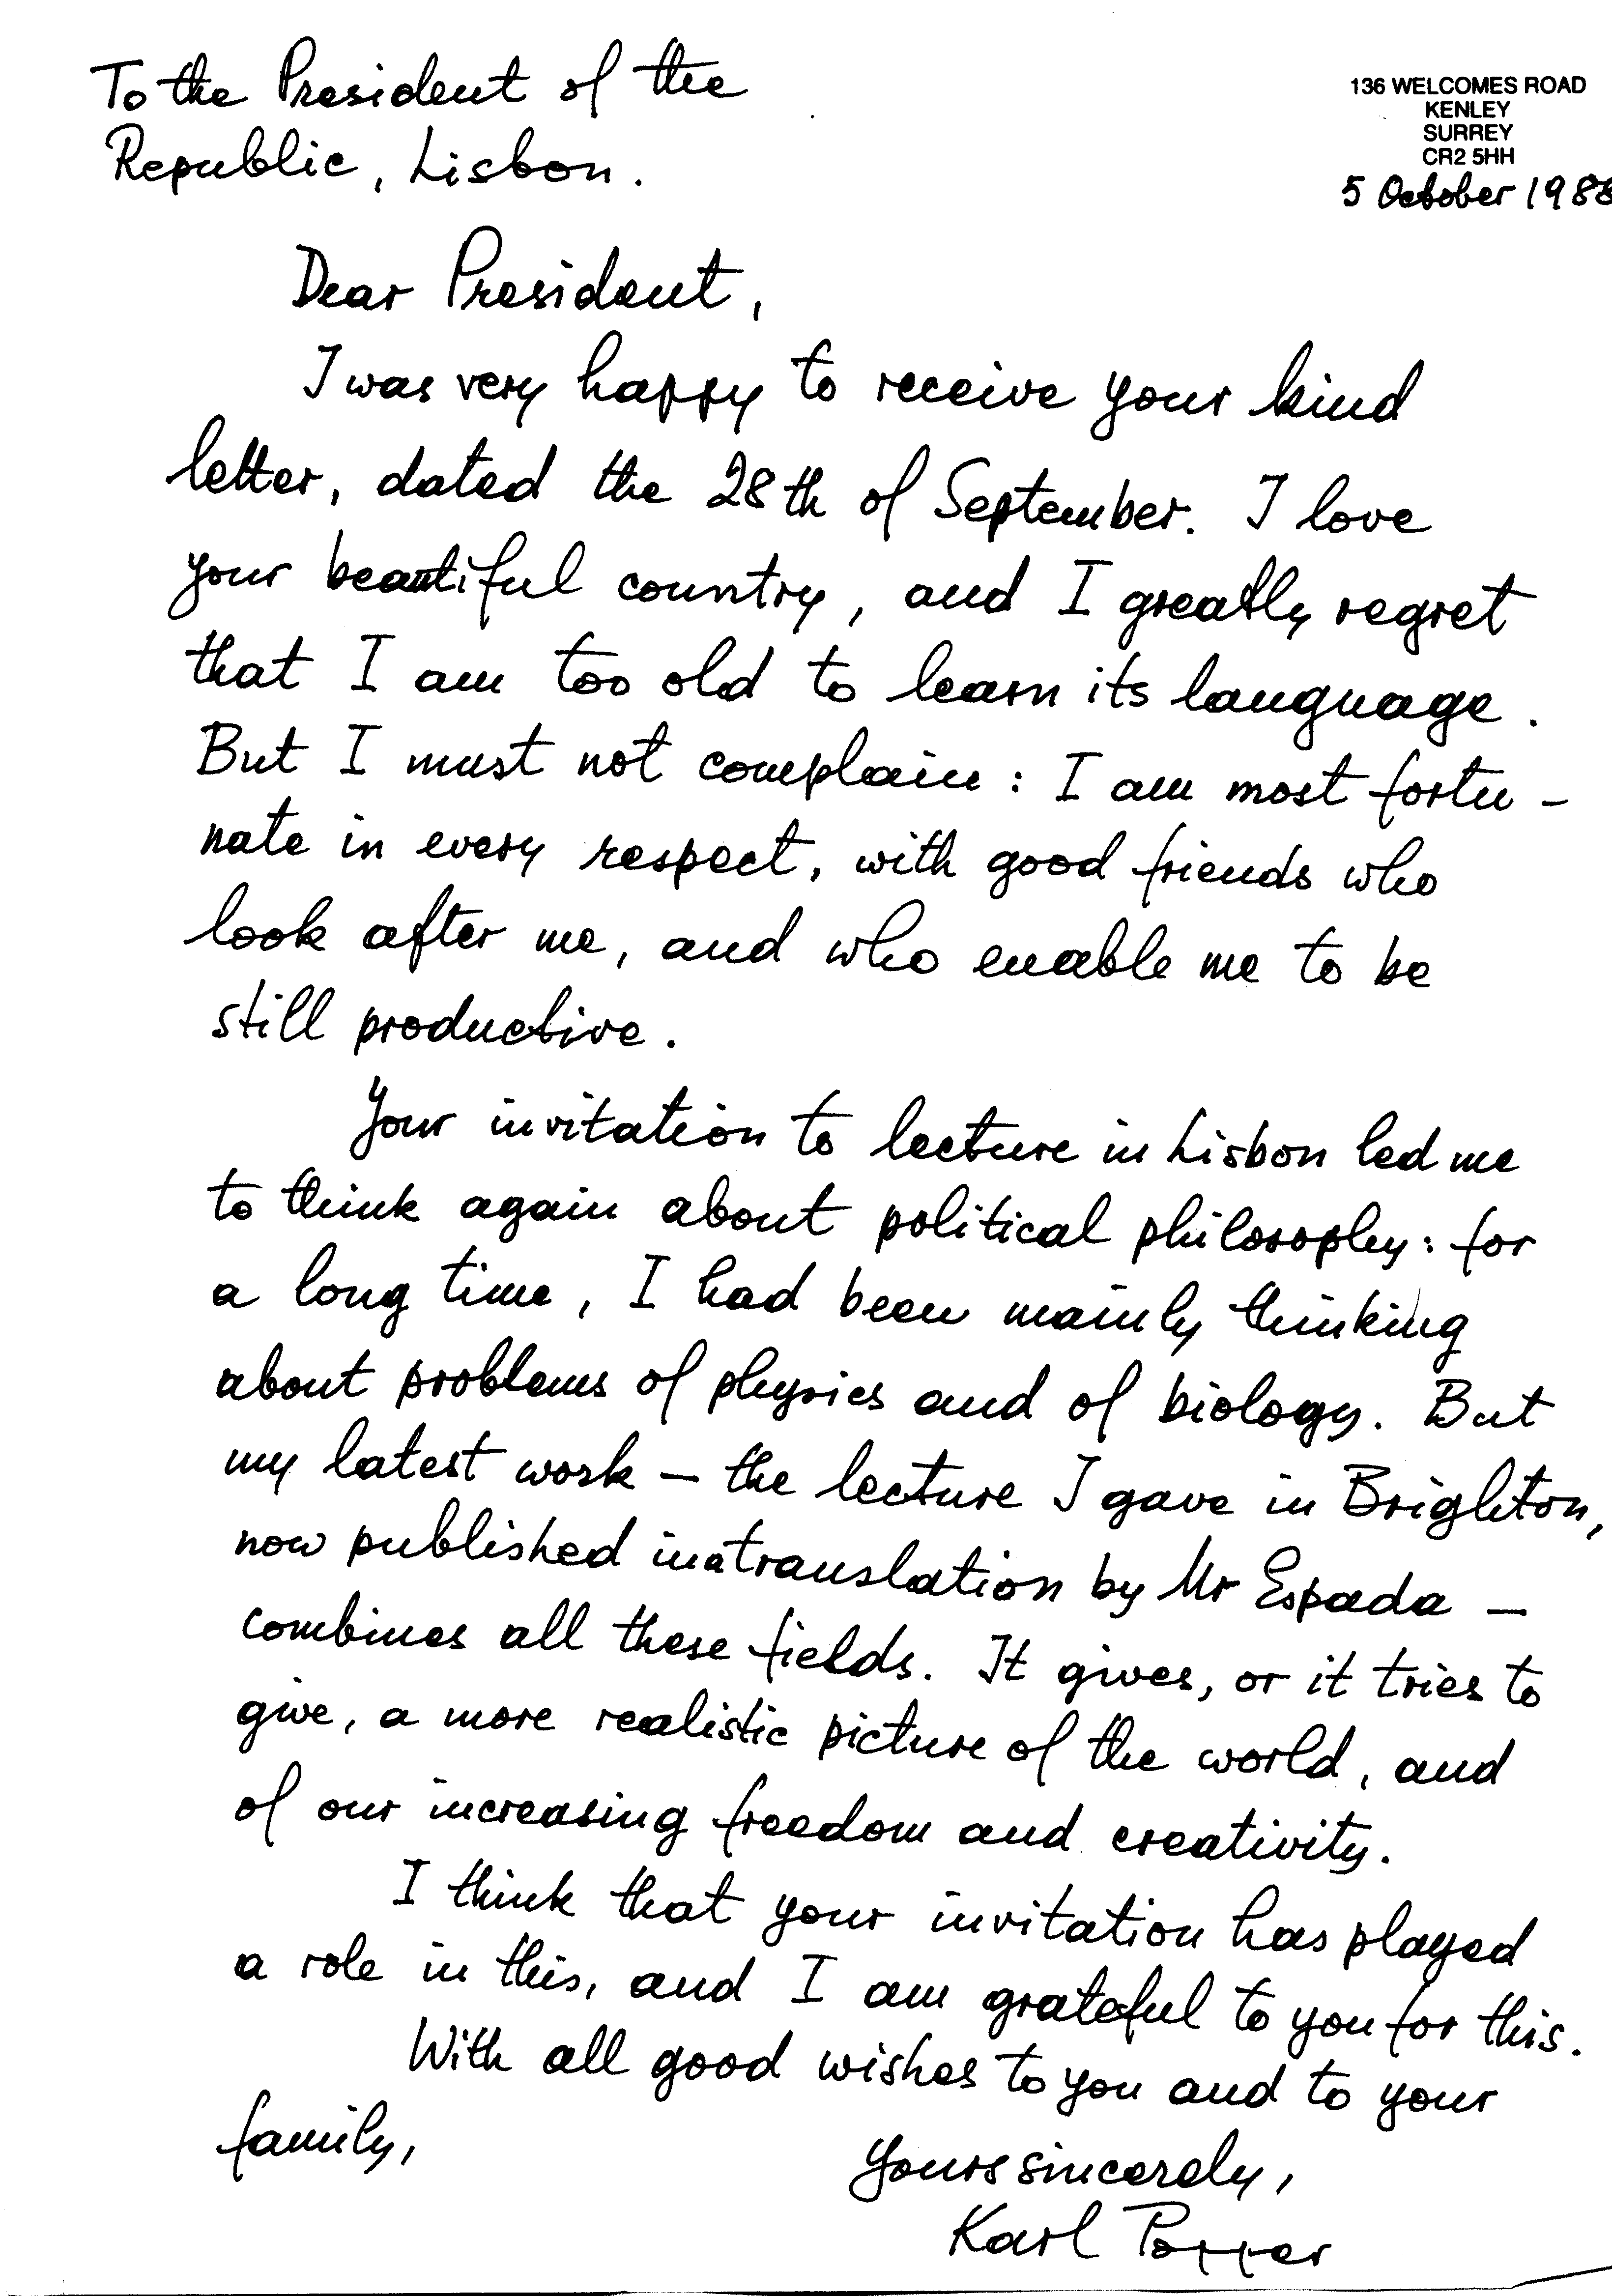 To the President of the
Republic, Lisbon.
136 WELCOMES ROAD
KENLEY
SURREY
CR2 5HH
5 October 1988
Dear President,
I was very happy to receive your kind
letter, dated the 28th of September. I love
your beautiful country, and I greatly regret
that I am too old to learn its language.
But I must not complain: I am most fortu-
nate in every respect, with good friends who
look after me, and who enable me to be
still productive.
Your invitation to lecture in Lisbon led me
to think again about political philosophy: for
a long time, I had been mainly thinking
about problems of physics and of biology. But
my latest work – the lecture I gave in Brighton,
now published in a translation by Mr Espada –
combines all these fields. It gives, or it tries to
give, a more realistic picture of the world, and
of our increasing freedom and creativity.
I think that your invitation has played
a role in this, and I am grateful to you for this.
With all good wishes to you and to your
family,
Yours sincerely,
Karl Popper